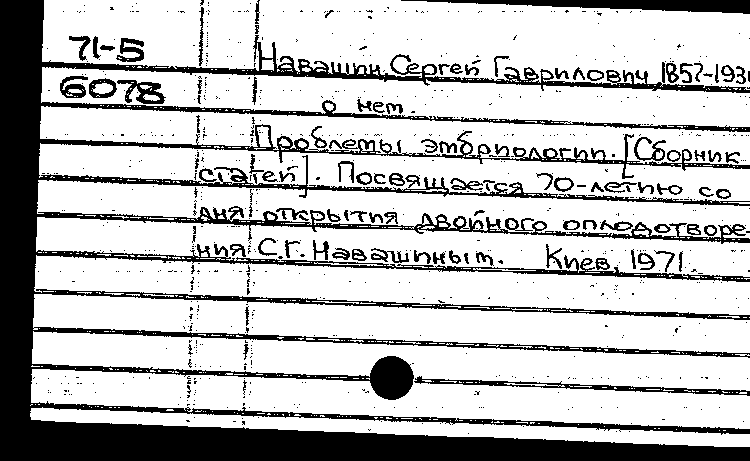 71-5
6078
Навашин, Сергей Гаврилович, 1857-193
о нем.
Проблемы эмбриологии. [Сборник
статей]. Посвящается 70-летию со
дня открытия двойного оплодотворе-
ния С.Г. Навашиным. Киев, 1971.